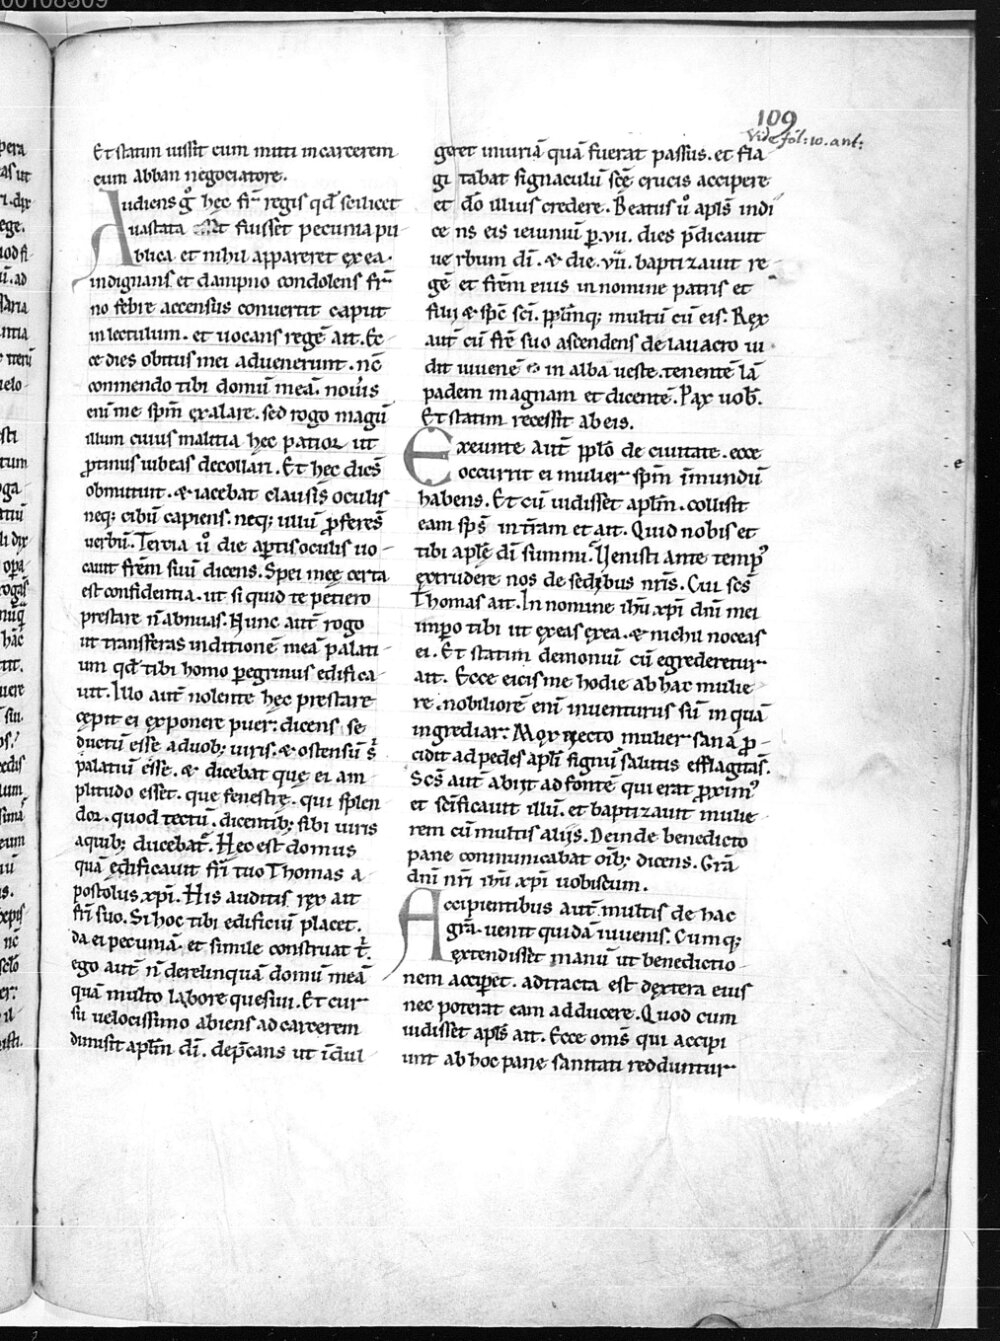 109
Vide fol: 10. ant:
Et statim iussit eum mitti in carcerem
cum abban negociatore.
Audiens g̊ hec fr̄ regis qd̄ scilicet
uastata esset fuisset pecunia pu
blica et nihil appareret ex ea.
indignans et dampno condolens fr̄
no febre accensus conuertit caput
in lectulum. et uocans regē ait. Ec
ce dies obitus mei aduenerunt. nc̄
conmendo tibi domū meā. nouīs
enī me spm̄ exalare. sed rogo magū
illum cuius malitia hec patior ut
ꝓtinus iubeas decollari. Et hec dicēs
obmutuit. & iacebat clausis oculis
neq; cibū capiens. neq; ullū ꝓferēs
uerbū. Tercia ů die aꝑtis oculis uo
cauit frēm suū dicens. Spei meę certa
est confidentia. ut si quid te petiero
prestare n̄ abnuas. Nunc aut̄ rogo
ut transferas in ditionē meā palati
um qd̄ tibi homo ꝑegrinus edifica
uit. Illo aut̄ nolente hec prestare
cępit ei exponere puer. dicens se
ductū esse a duob; uiris. & ostensū s̄
palatiū esse. & dicebat que ei am
plitudo esset. que fenestrę. qui splen
dor. quod tectū. dicentib; sibi uiris
a quib; ducebat̄. Hec est domus
quā edificauit fr̄i tuo Thomas a
postolus xp̄i. His auditis rex ait
fr̄i suo. Si hoc tibi edificiū placet.
da ei pecuniā. et simile construat t̄.
ego aut̄ n̄ derelinquā domū meā
quā multo labore quesiui. Et cur
su uelocissimo abiens ad carcerem
dimisit apl̄m dī. dep̄cans ut īdul
geret iniuriā quā fuerat passus. et fla
gi tabat signaculū scę̄ crucis accipere
et dō illius credere. Beatus ů apl̄s indi
ce ns eis ieiuniū ꝑ .vii. dies p̄dicauit
ue rbum dī. & die .vii. baptizauit re
gē et frēm eius in nomine patris et
filii & sp̄c scī. ppl̄inq; multū cū eis. Rex
aut̄ cū frē suo ascendens de lauacro ui
dit iuuenē in alba ueste. tenentē lā
padem magnam et dicentē. Pax uob̄.
Et statim recessit ab eis.
Exeunte aut̄ ppl̄o de ciuitate. ecce
occurrit ei mulier spm̄ īmundū
habens. Et cū uidisset apl̄m. collisit
eam sp̄s in tr̄am et ait. Quid nobis et
tibi apl̄e dī summi. Uenisti ante temp᾽
extrudere nos de sedibus nr̄is. Cui scs̄
Thomas ait. In nomine ihū xp̄i dn̄i mei
imꝑo tibi ut exeas ex ea. & nichil noceas
ei. Et statim demoniū cū egrederetur
ait. Ecce eicis me hodie ab hac mulie
re. nobiliorē enī inuenturus sū in quā
ingrediar. Mox recto mulier sana ꝓ
cidit ad pedes apl̄i signū salutis efflagitās.
Scs̄ aut̄ abiit ad fontē qui erat ꝓxim᾽
et sc̄ificauit illū. et baptizauit mulie
rem cū multis aliis. Deinde benedicto
pane communicabat oīb; dicens. Gr̄a
dn̄i nr̄i ihū xp̄i uobiscum.
Accipientibus aut̄ multis de hac
gr̄a. uenit quidā iuuenis. Cumq;
extendisset manū ut benedictio
nem acciꝑet. adtracta est dextera eius
nec poterat eam adducere. Quod cum
uidisset apl̄s ait. Ecce om̄s qui accipi
unt ab hoc pane sanitati redduntur